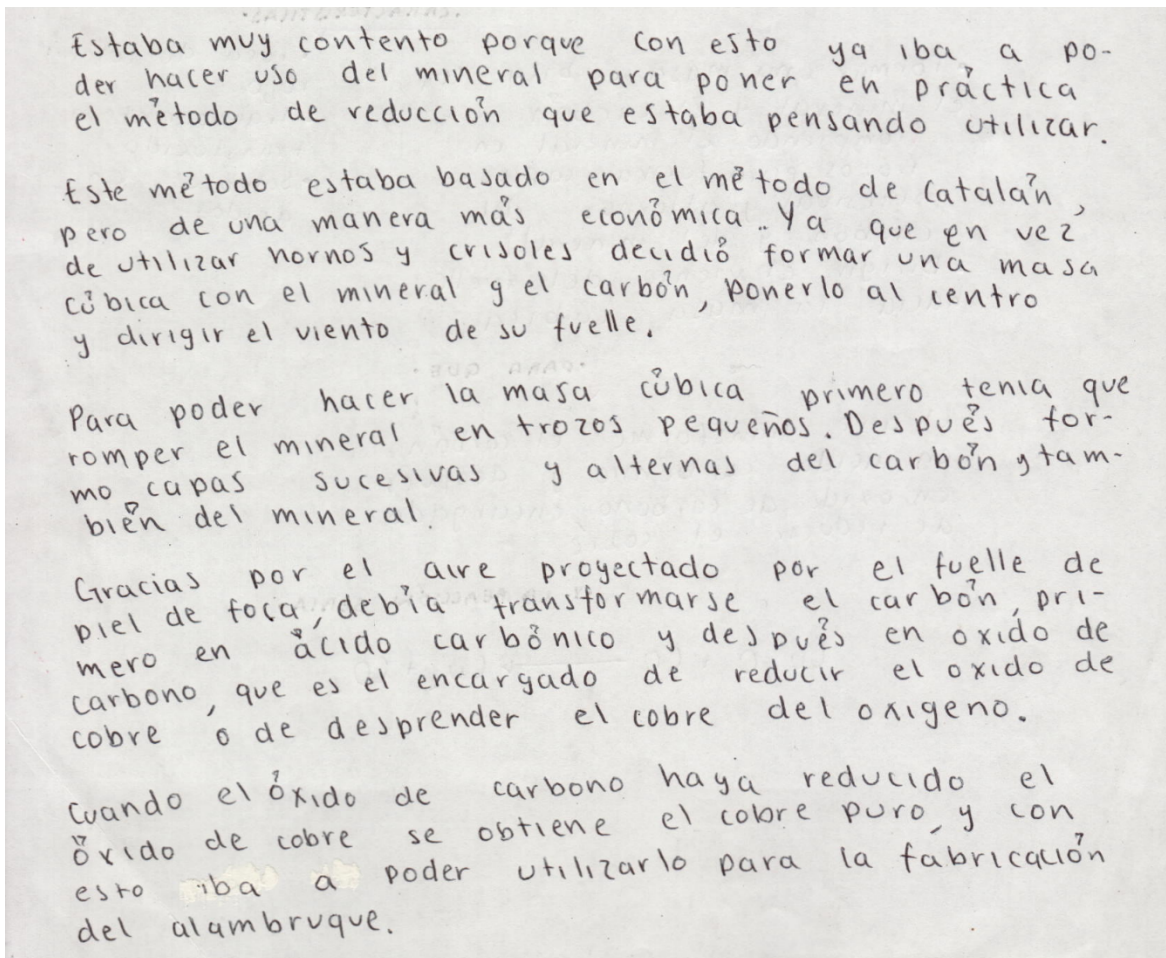 Estaba muy contento porque con esto ya iba a po-
der hacer uso del mineral para poner en práctica
el método de reducción que estaba pensando utilizar.
Este método estaba basado en el método de Catalán,
pero de una manera más económica. Ya que en vez
de utilizar hornos y crisoles decidió formar una masa
cúbica con el mineral y el carbón, ponerlo al centro
y dirigir el viento de su fuelle.
Para poder hacer la masa cúbica primero tenia que
romper el mineral en trozos pequeños. Después for-
mo capas sucesivas y alternas del carbón y tam-
bién del mineral.
Gracias por el aire proyectado por el fuelle de
piel de foca, debía transformarse el carbón, pri-
mero en ácido carbónico y después en oxido de
carbono, que es el encargado de reducir el oxido de
cobre o de desprender el cobre del oxigeno.
Cuando el óxido de carbono haya reducido el
óxido de cobre se obtiene el cobre puro, y con
esto iba a poder utilizarlo para la fabricación
del alambruque.